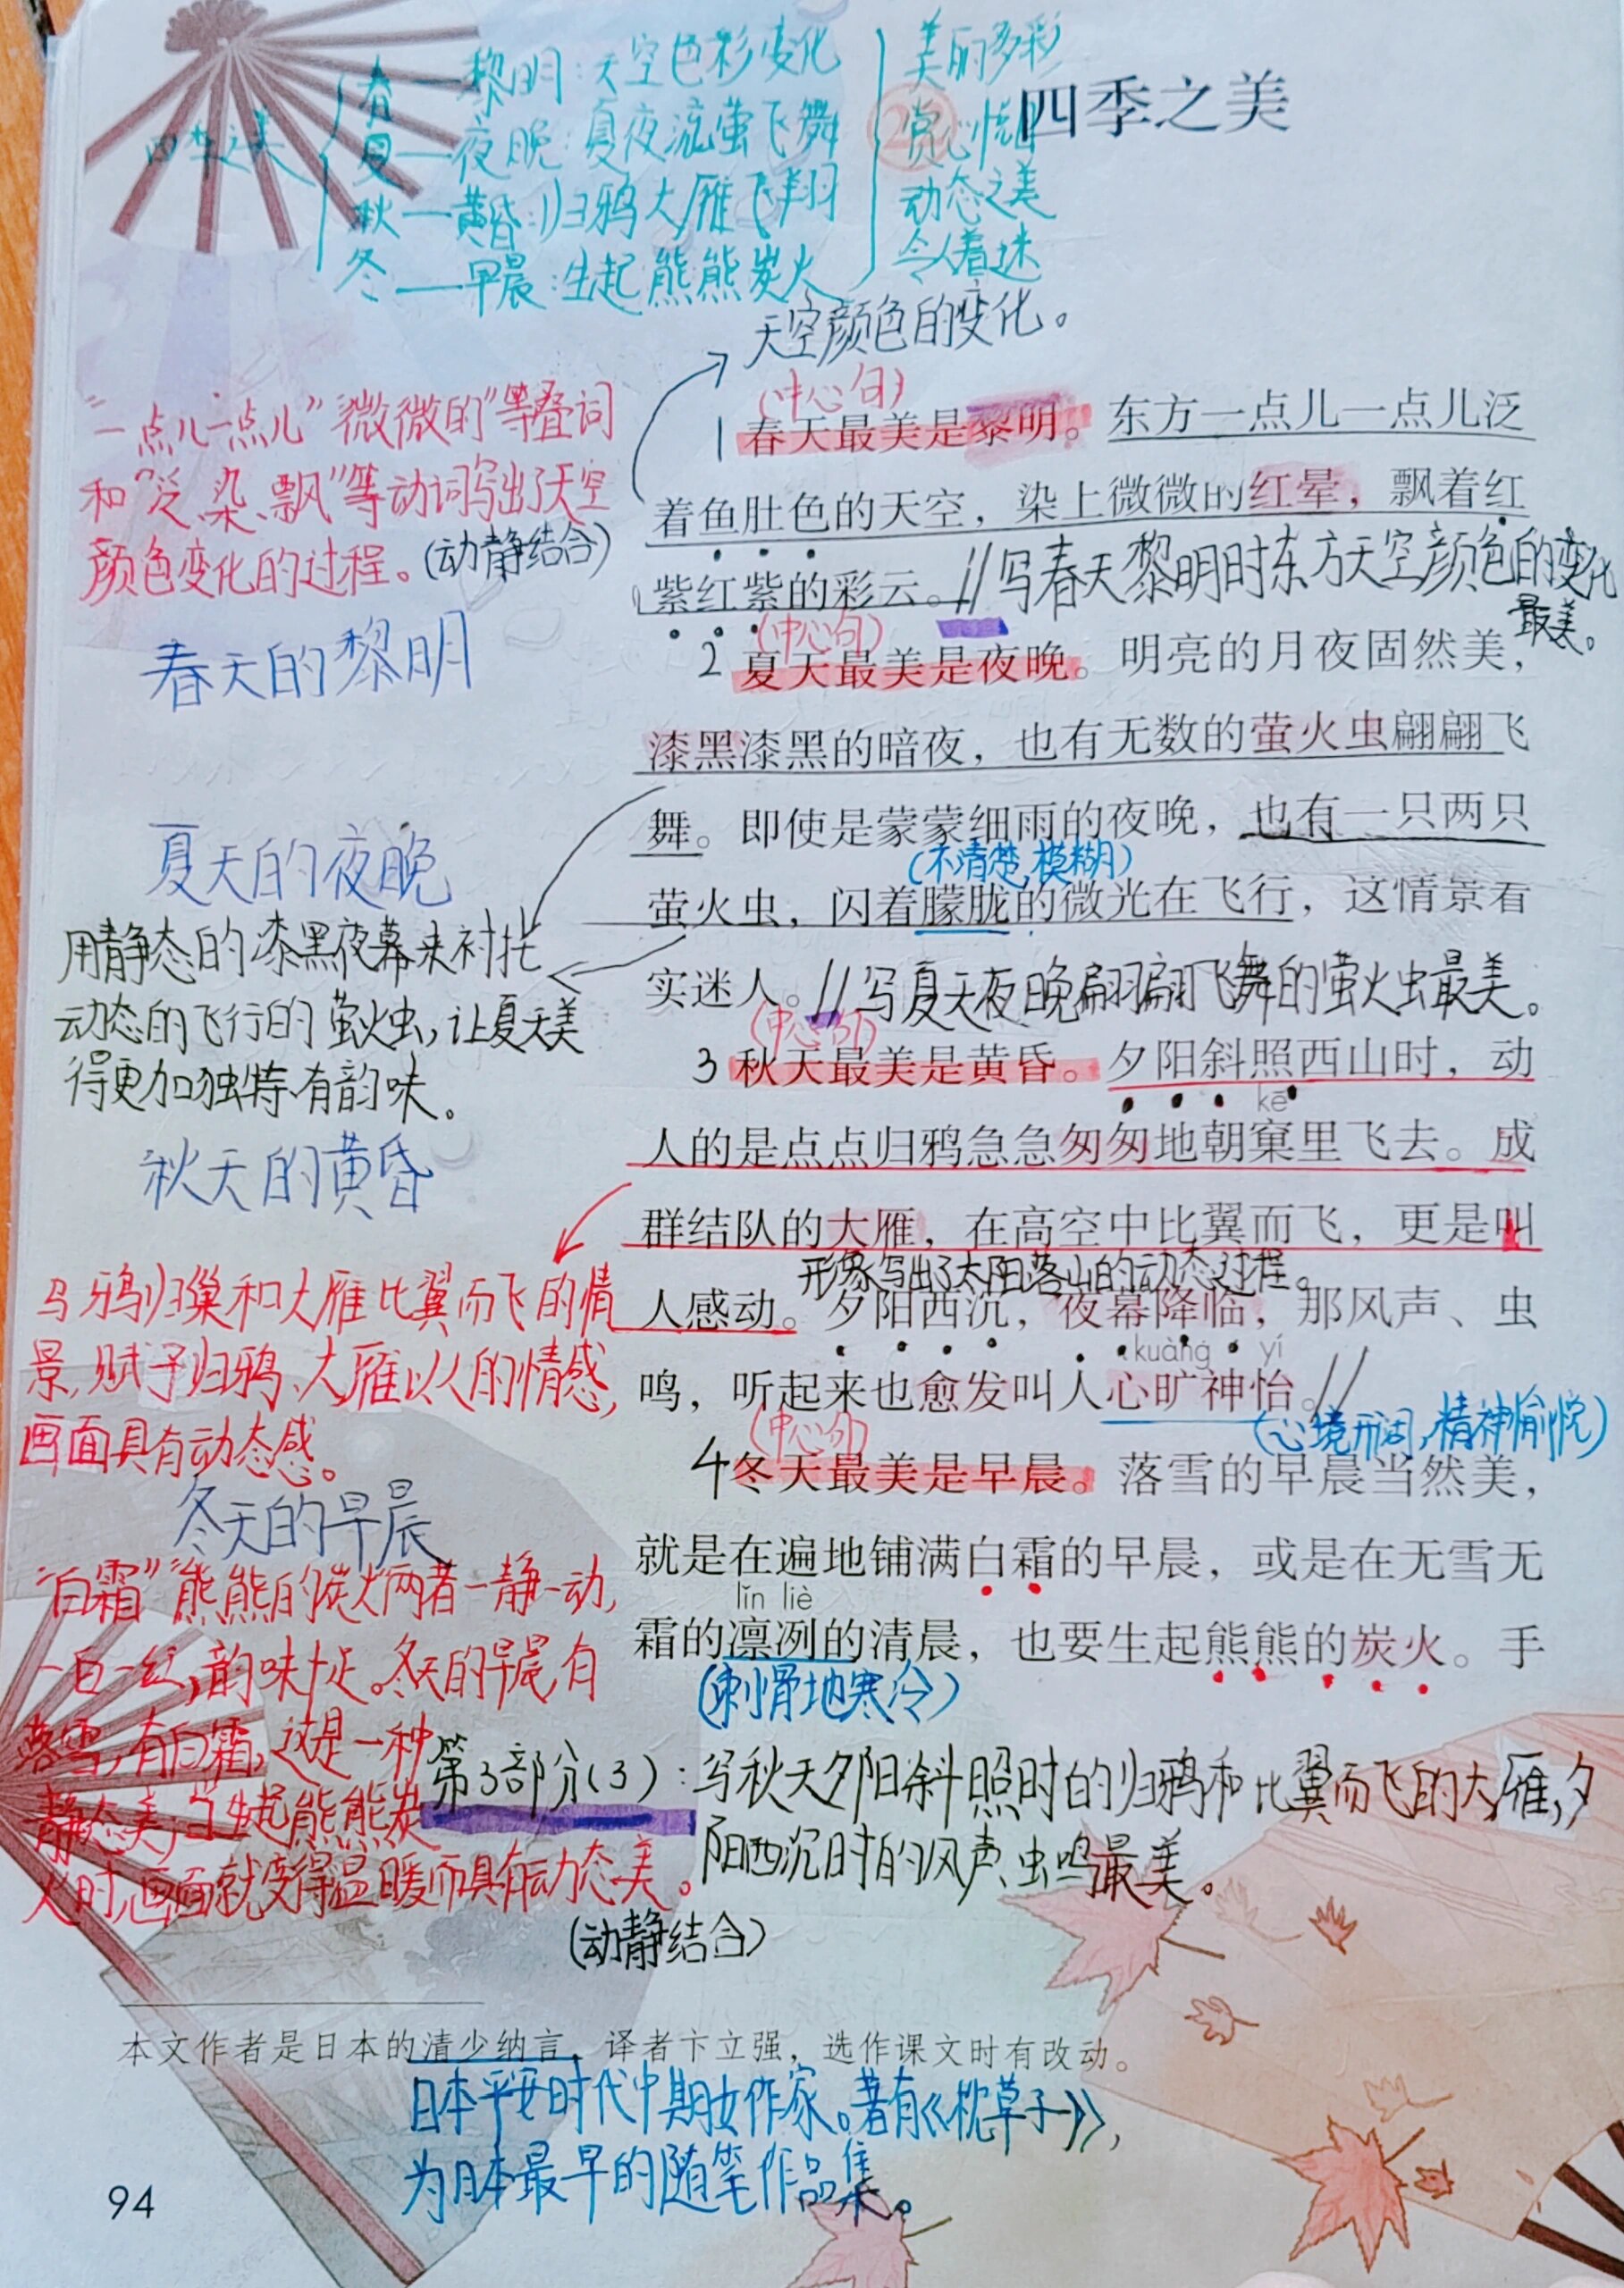 四季之美
春—黎明：天空色彩变化
夏—夜晚：夏夜流萤飞舞
秋—黄昏：归鸦大雁飞翔
冬—早晨：生起熊熊炭火
美丽多彩
赏心悦目
动态之美
令人着迷
四季之美
天空颜色的变化。
(中心句)
1 春天最美是黎明。东方一点儿一点儿泛
着鱼肚色的天空，染上微微的红晕，飘着红
紫红紫的彩云。//写春天黎明时东方天空颜色的变化
最美。
"一点儿一点儿""微微的"等叠词
和"泛、染、飘"等动词写出了天空
颜色变化的过程。(动静结合)
春天的黎明
(中心句)
2 夏天最美是夜晚。明亮的月夜固然美，
漆黑漆黑的暗夜，也有无数的萤火虫翩翩飞
舞。即使是蒙蒙细雨的夜晚，也有一只两只
(不清楚,模糊)
萤火虫，闪着朦胧的微光在飞行，这情景着
实迷人。//写夏天夜晚翩翩飞舞的萤火虫最美。
夏天的夜晚
用静态的漆黑夜幕来衬托
动态的飞行的萤火虫,让夏天美
得更加独特、有韵味。
(中心句)
3 秋天最美是黄昏。夕阳斜照西山时，动
kē
人的是点点归鸦急急匆匆地朝窠里飞去。成
群结队的大雁，在高空中比翼而飞，更是叫
形象写出了太阳落山的动态过程。
人感动。夕阳西沉，夜幕降临，那风声、虫
kuàng yí
鸣，听起来也愈发叫人心旷神怡。//
(心境开阔,精神愉悦)
秋天的黄昏
写鸦归巢和大雁比翼而飞的情
景,赋予归鸦、大雁以人的情感,
画面具有动态感。
(中心句)
4 冬天最美是早晨。落雪的早晨当然美，
就是在遍地铺满白霜的早晨，或是在无雪无
lǐn liè
霜的凛冽的清晨，也要生起熊熊的炭火。手
(刺骨地寒冷)
冬天的早晨
"白霜""熊熊的炭火"两者一静一动,
一白一红,韵味十足。冬天的早晨,有
落雪,有白霜,这是一种
静态美,当生起熊熊炭
火时,画面就变得温暖而具有动态美。
(动静结合)
第3部分(3)：写秋天夕阳斜照时的归鸦和比翼而飞的大雁,夕
阳西沉时的风声、虫鸣最美。
本文作者是日本的清少纳言，译者卞立强，选作课文时有改动。
日本平安时代中期女作家。著有《枕草子》,
为日本最早的随笔作品集。
94